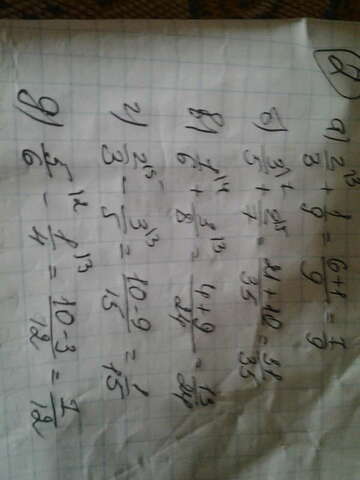 2
а) 2/3 \3 + 1/9 = 6+1/9 = 7/9
б) 3/5 \7 + 2/7 \5 = 21+10/35 = 31/35
в) 1/6 \4 + 3/8 \3 = 4+9/24 = 13/24
г) 2/3 \5 - 3/5 \3 = 10-9/15 = 1/15
д) 5/6 \2 - 1/4 \3 = 10-3/12 = 7/12